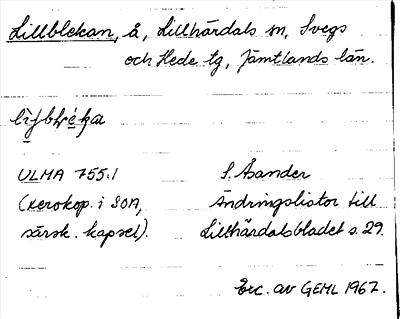 Lillblekan, å, Lillhärdals sn, Svegs
och Hede tg, Jämtlands län.
ULMA 755:1
S. Åsander
(xerokop. i SOA,
Ändringslistor till
särsk. kapsel).
Lillhärdalsbladet s. 29.
Exc. av GEML 1967.